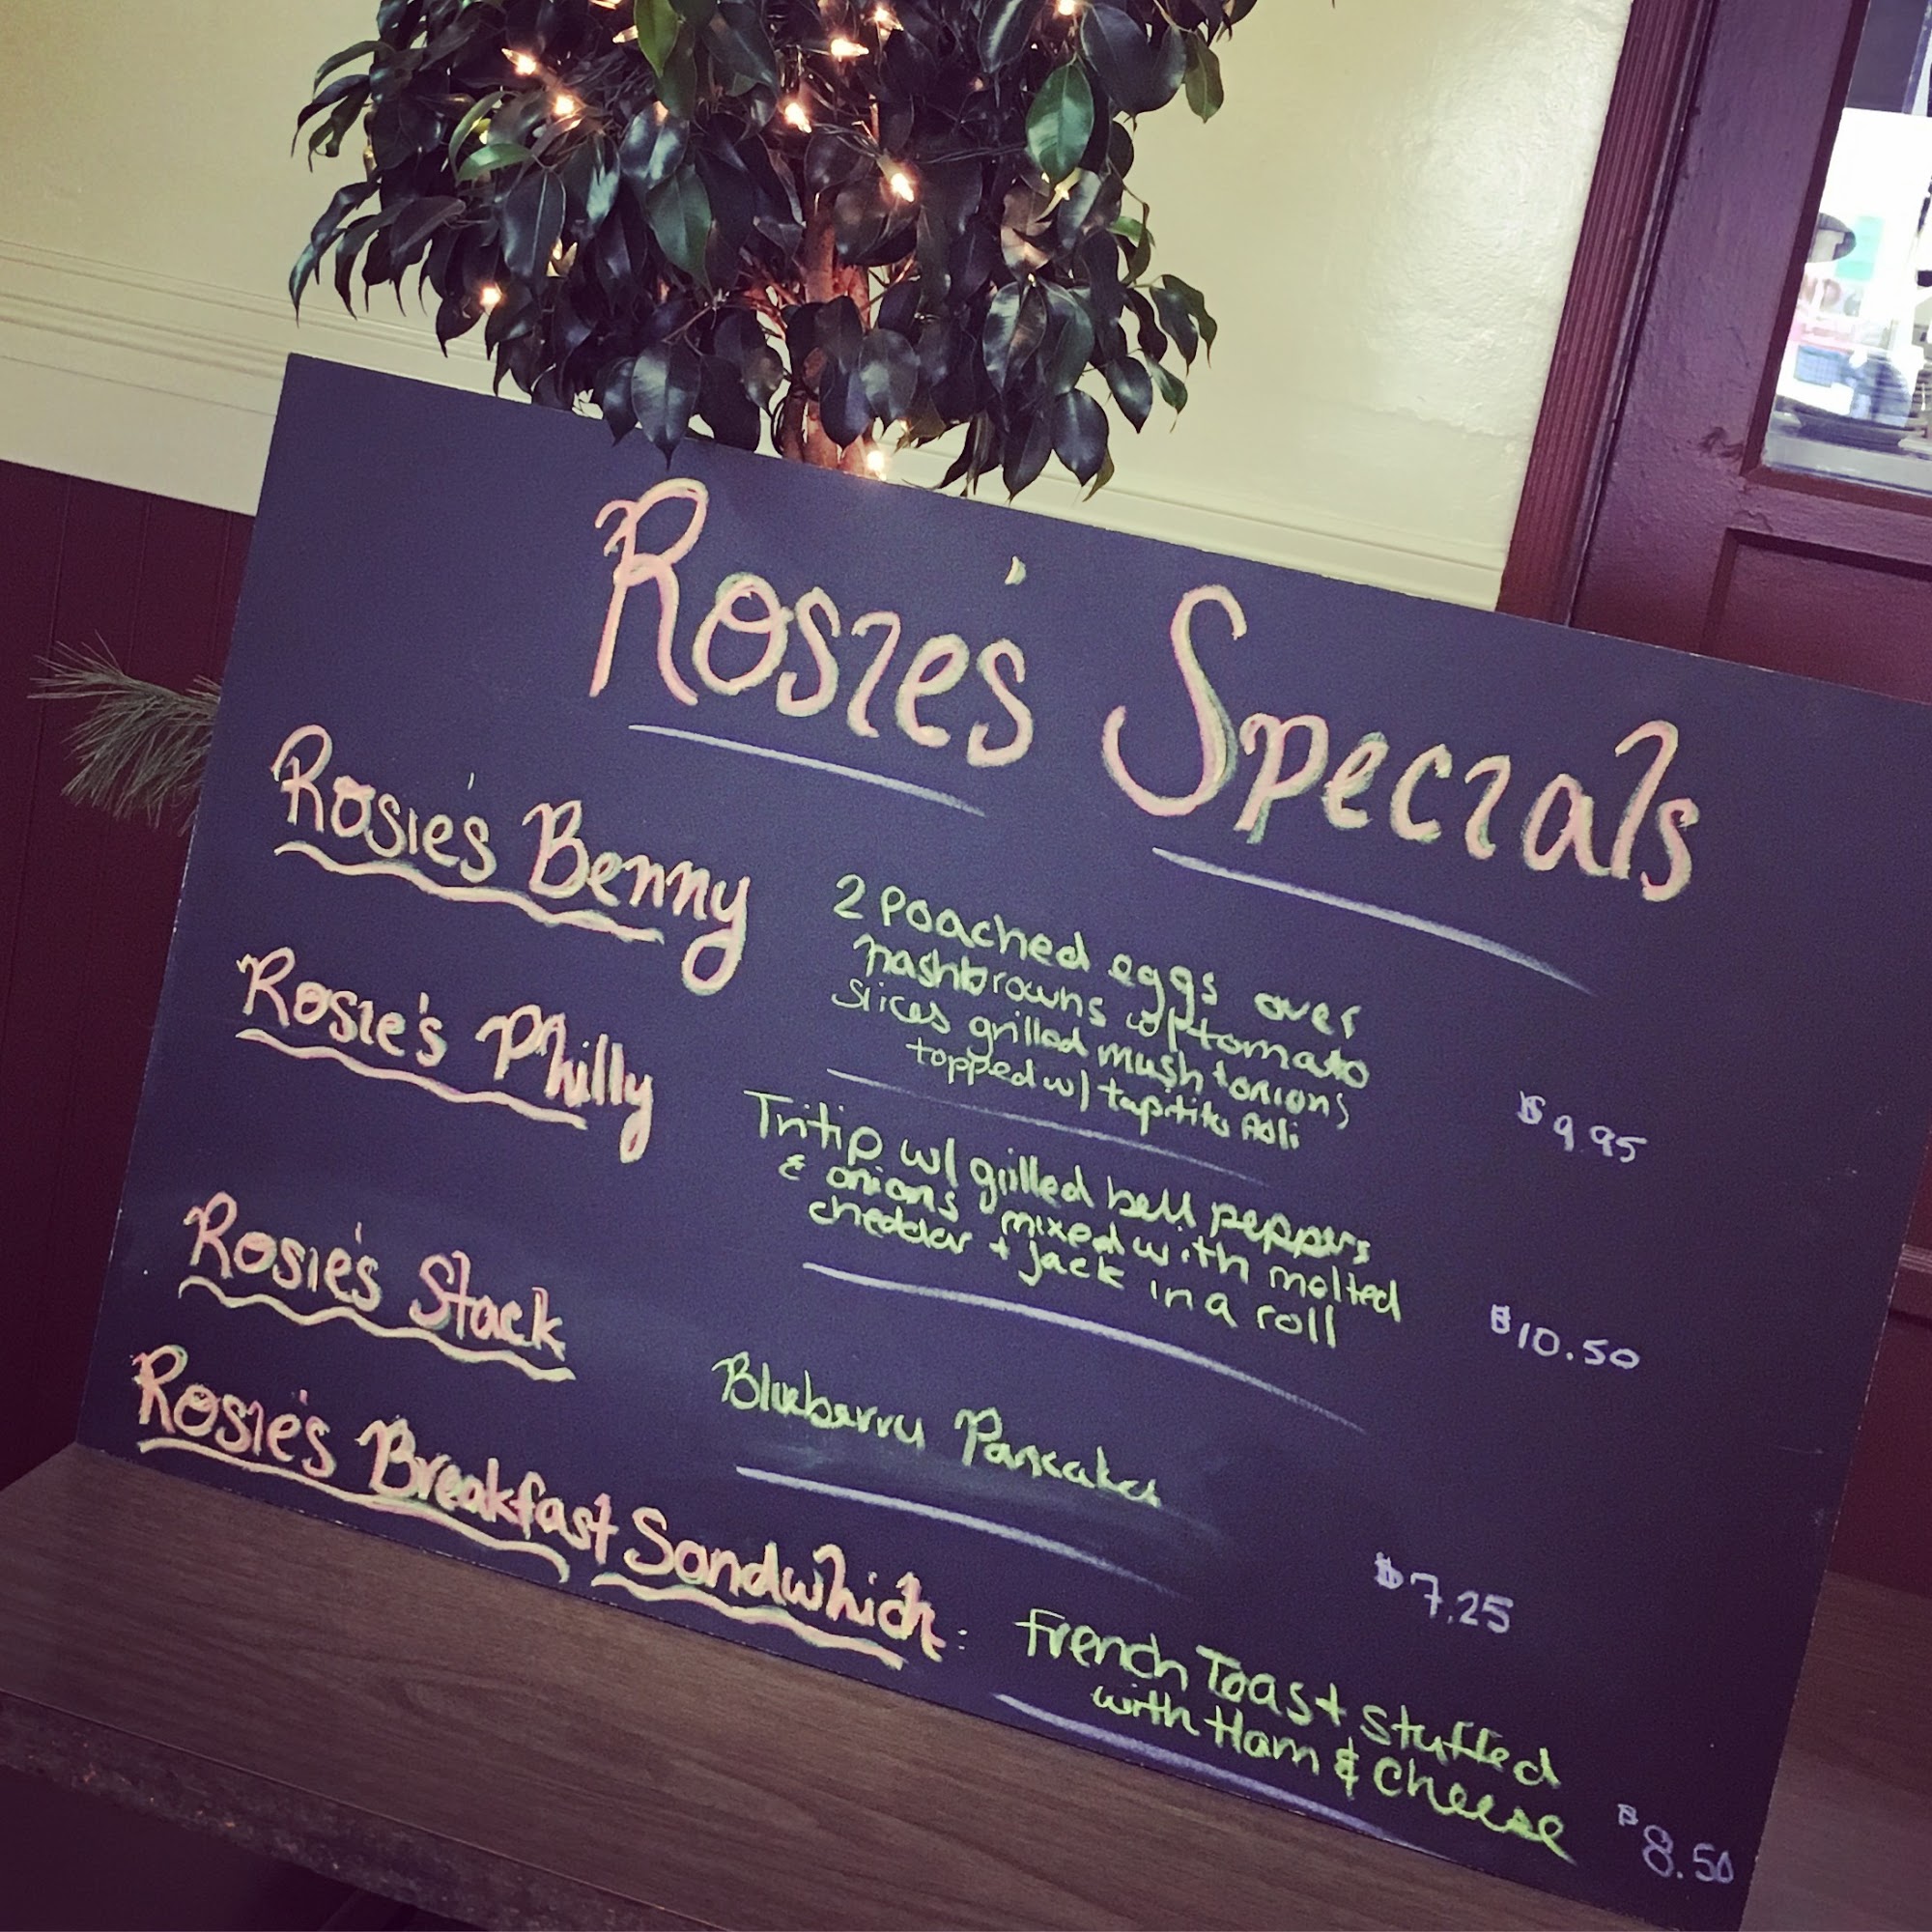 Rosie's Specials
Rosie's Benny
2 Poached eggs over
hashbrowns w/ tomato
slices grilled mush + onions
topped w/ Aoli
$9.95
Rosie's Philly
Tritip w/ grilled bell peppers
& onions mixed with melted
cheddar + jack in a roll
$10.50
Rosie's Stack
Blueberry Pancakes
$7.25
Rosie's Breakfast Sandwhich:
French Toast Stuffed
with Ham & Cheese
$8.50